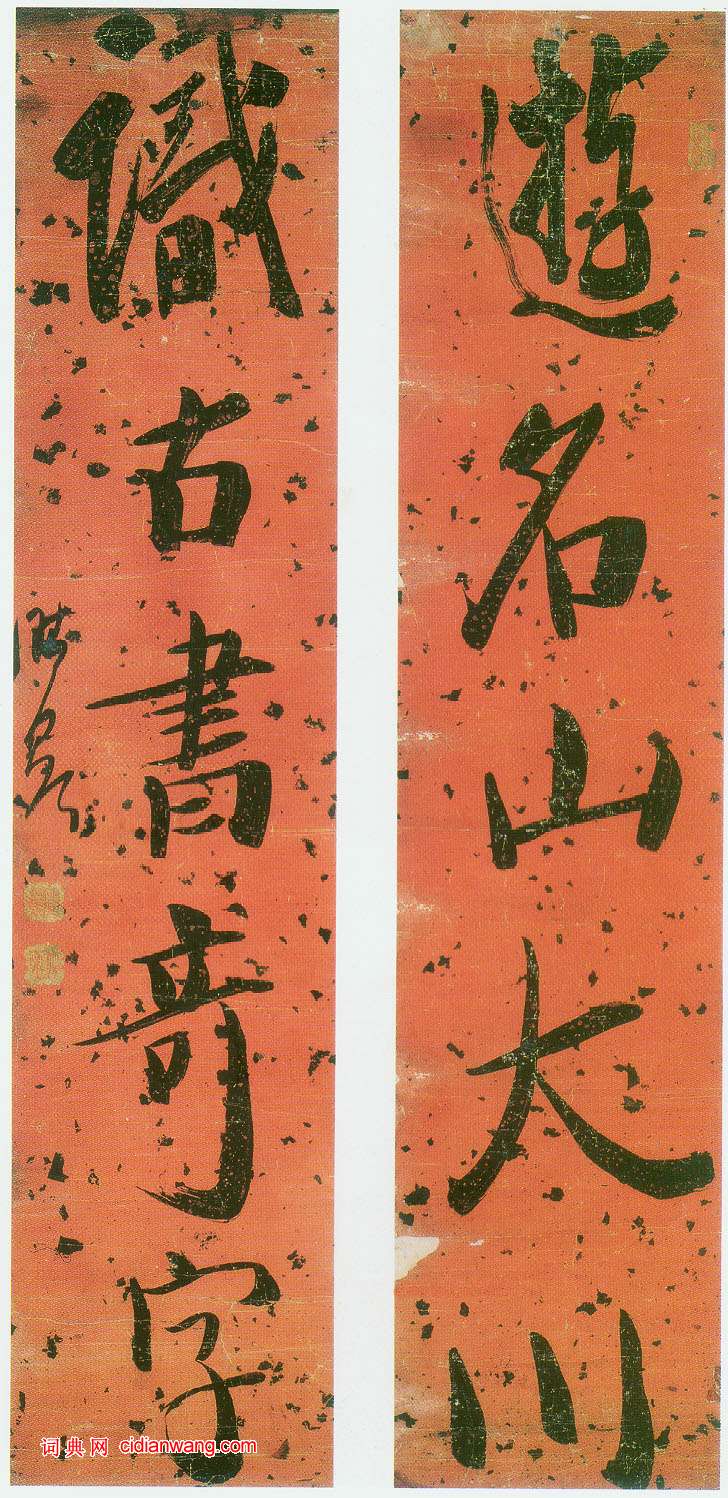 遊名山大川
識古書奇字
词典网 cidianwang.com